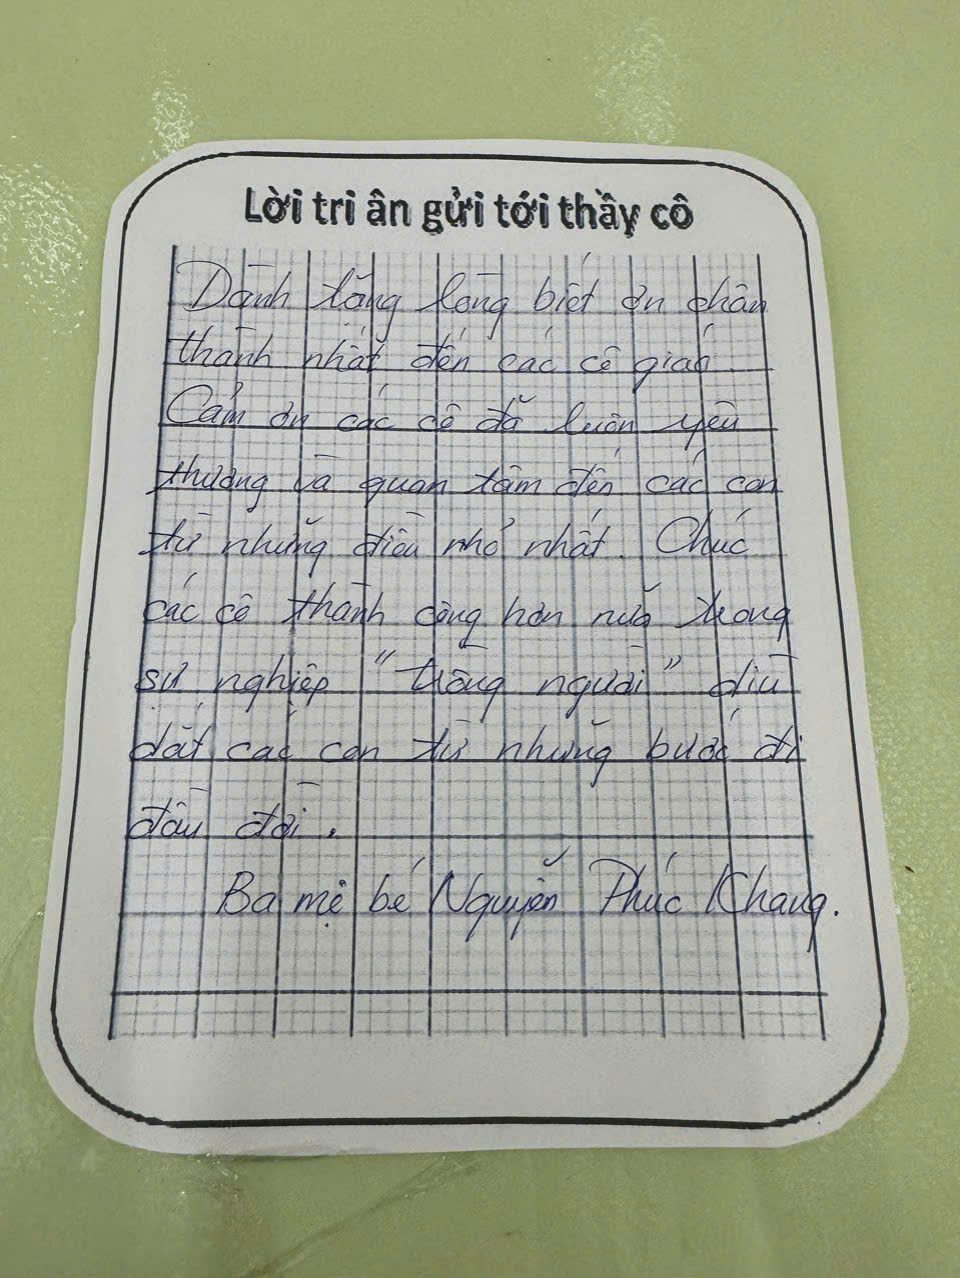 Lời tri ân gửi tới thầy cô
Dành tặng lòng biết ơn chân
thành nhất đến các cô giáo.
Cảm ơn các cô đã luôn yêu
thương và quan tâm đến các con
từ những điều nhỏ nhất. Chúc
các cô thành công hơn nữa trong
sự nghiệp "trồng người" dìu
dắt các con từ những bước đi
đầu đời.
Ba mẹ bé Nguyễn Phúc Khang.